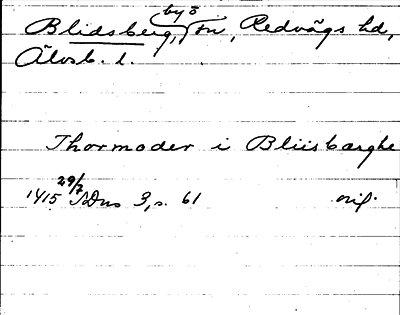 Blidsberg, by o sn, Redvägs hd,
Älvsb. l.
Thormoder i Bliisbærghe
1415 29/7 SDns 3, s. 61 orig.